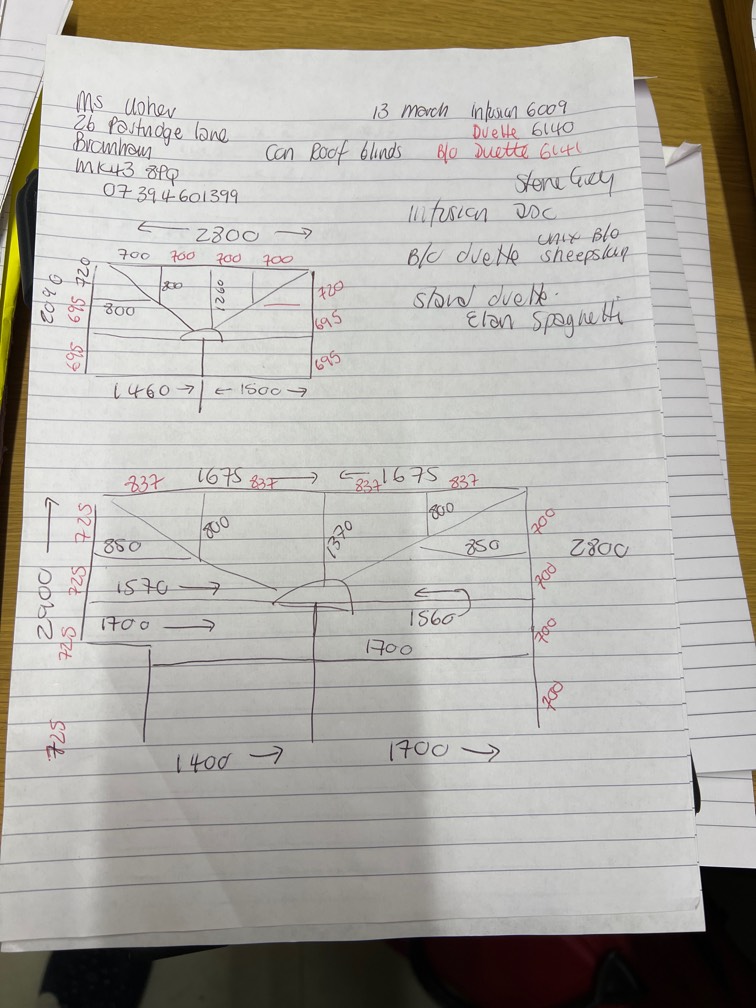 Ms Usher 13 March Infusion 6009
26 Partridge Lane Duette 6140
Bromham Con Roof blinds B/O Duette 6141
MK43 8PQ Stone Grey
07394601399
Infusion
unix B/O
B/O duette sheepskin
Stand duette.
Elan Spaghetti
← 2800 →
700 700 700 700
2096 720 800 1260 720
695 800 695
695 695
1460 → ← 1500 →
837 1675 837 → ← 837 1675 837
2900 → 725 800 1370 800 700
850 850 2800
725 1570 → 700
1700 → 1560 700
725 1700
725 700
1400 → 1700 →